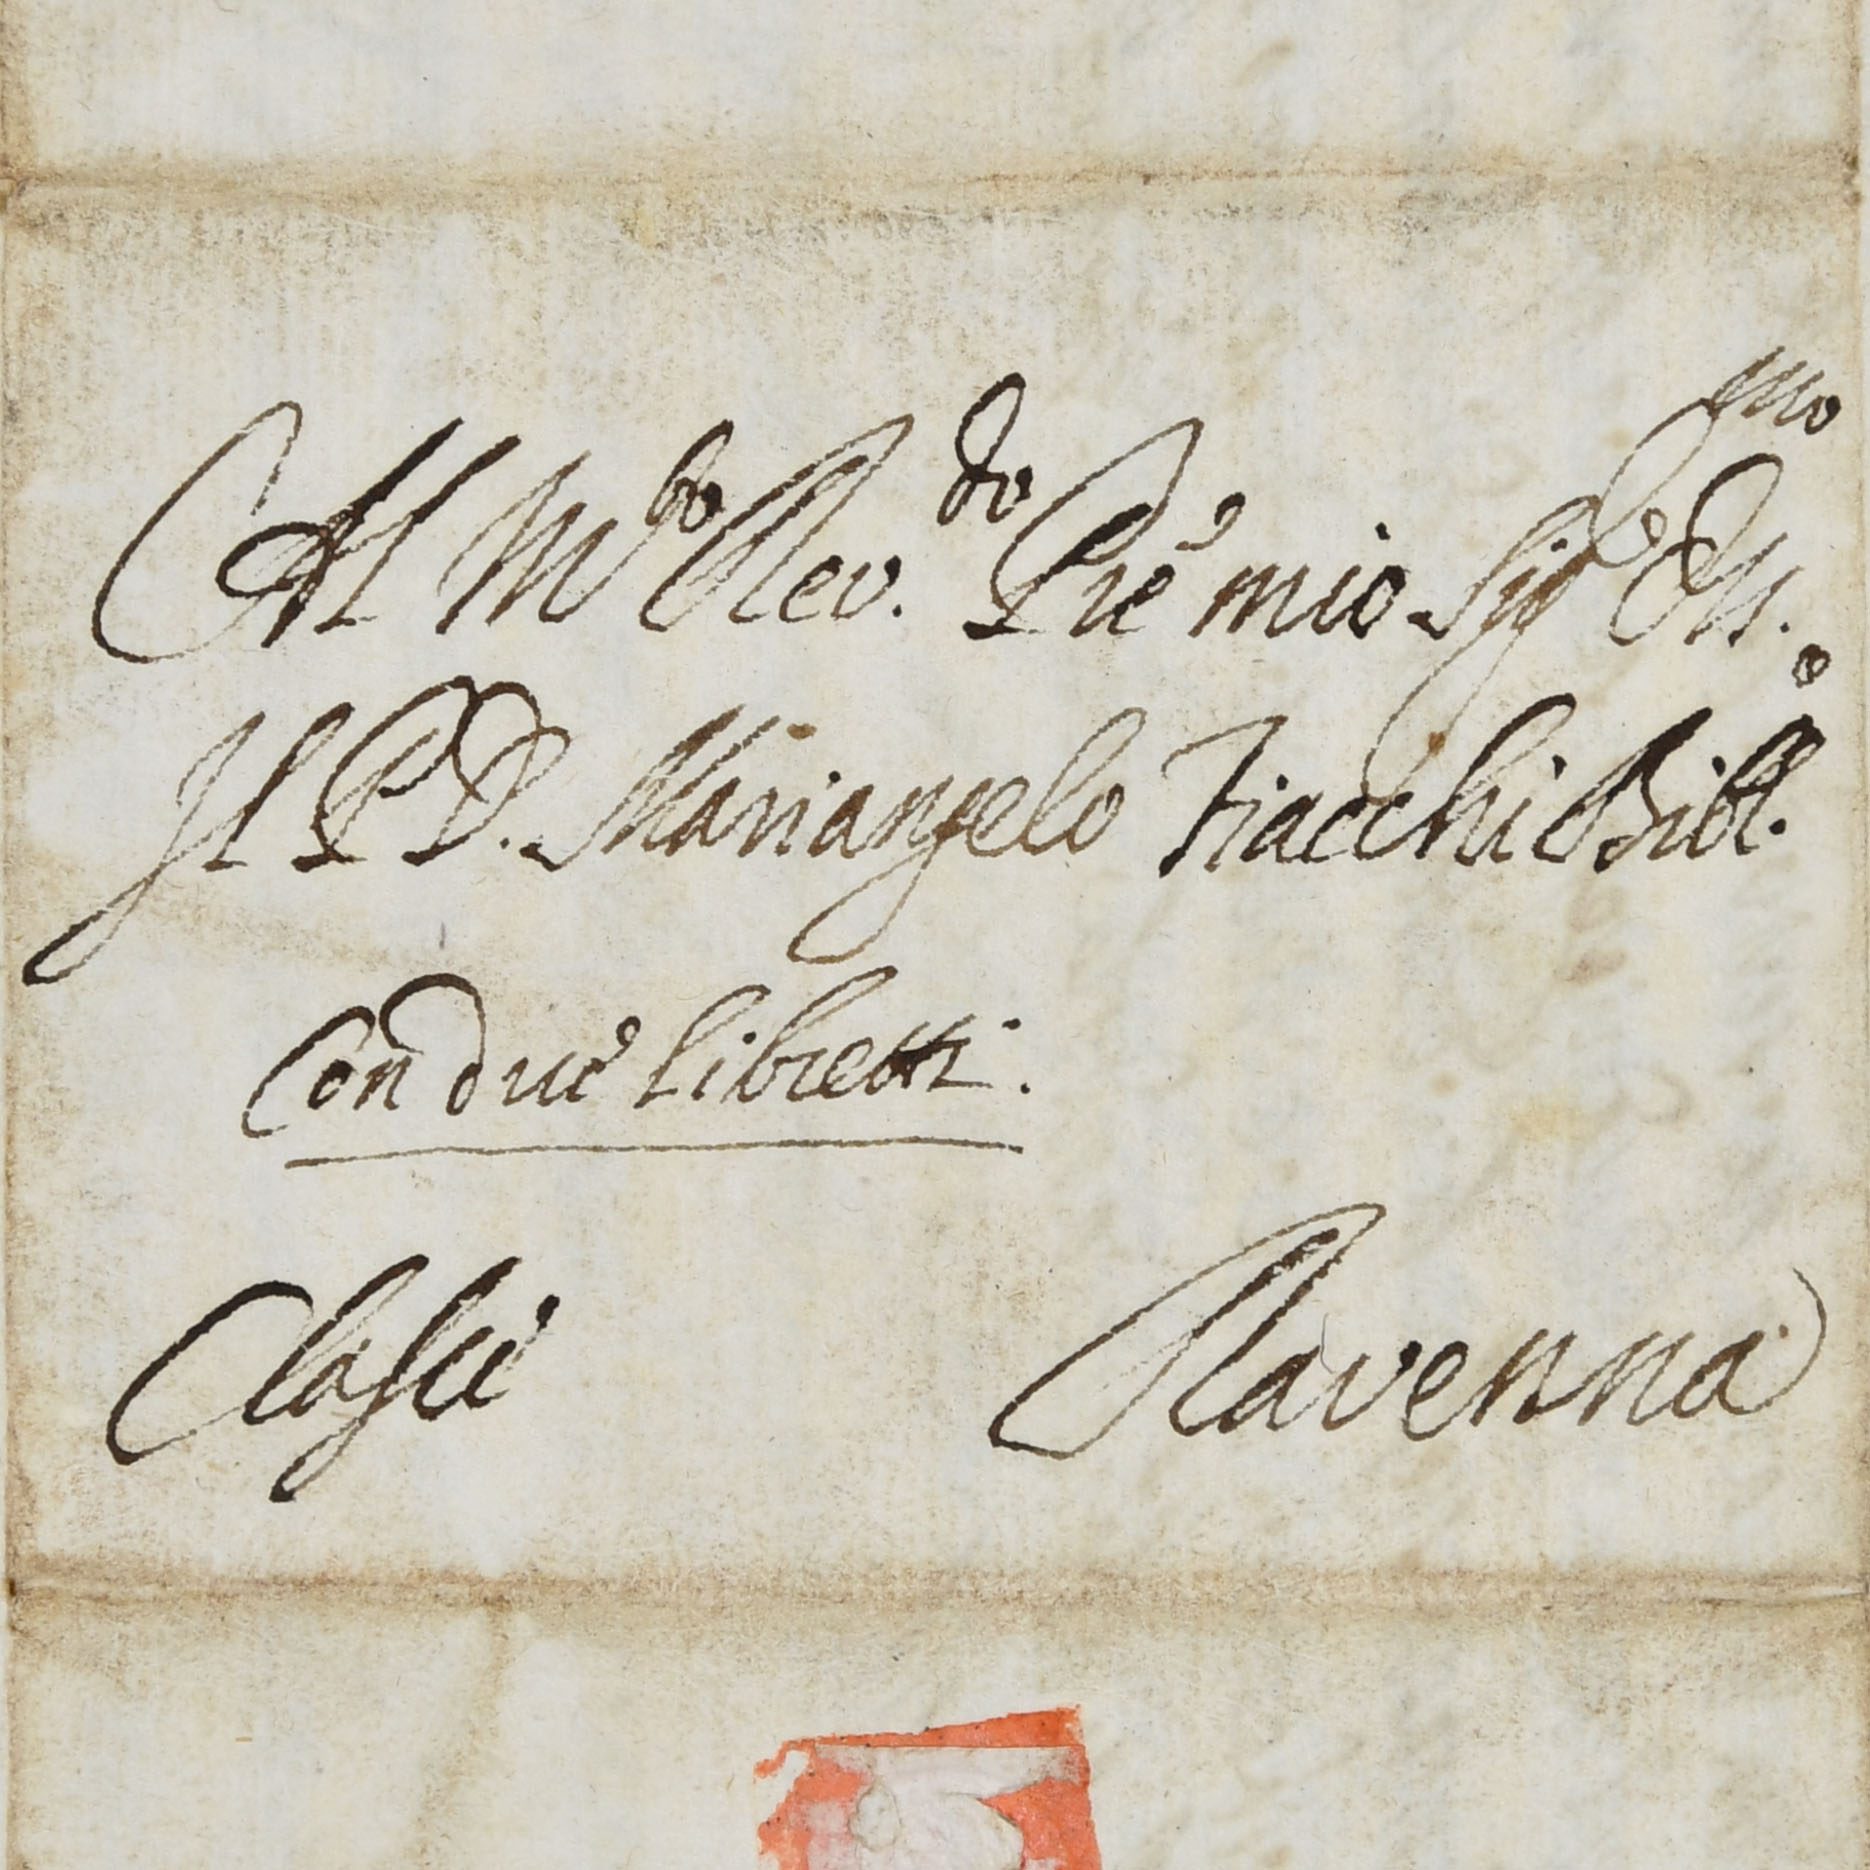 Al M.to Rev.do Prē mio Sig.e Oss.mo
Il P. D. Mariangelo Fiacchi Bibl.o
Con due libretti.
Classe Ravenna